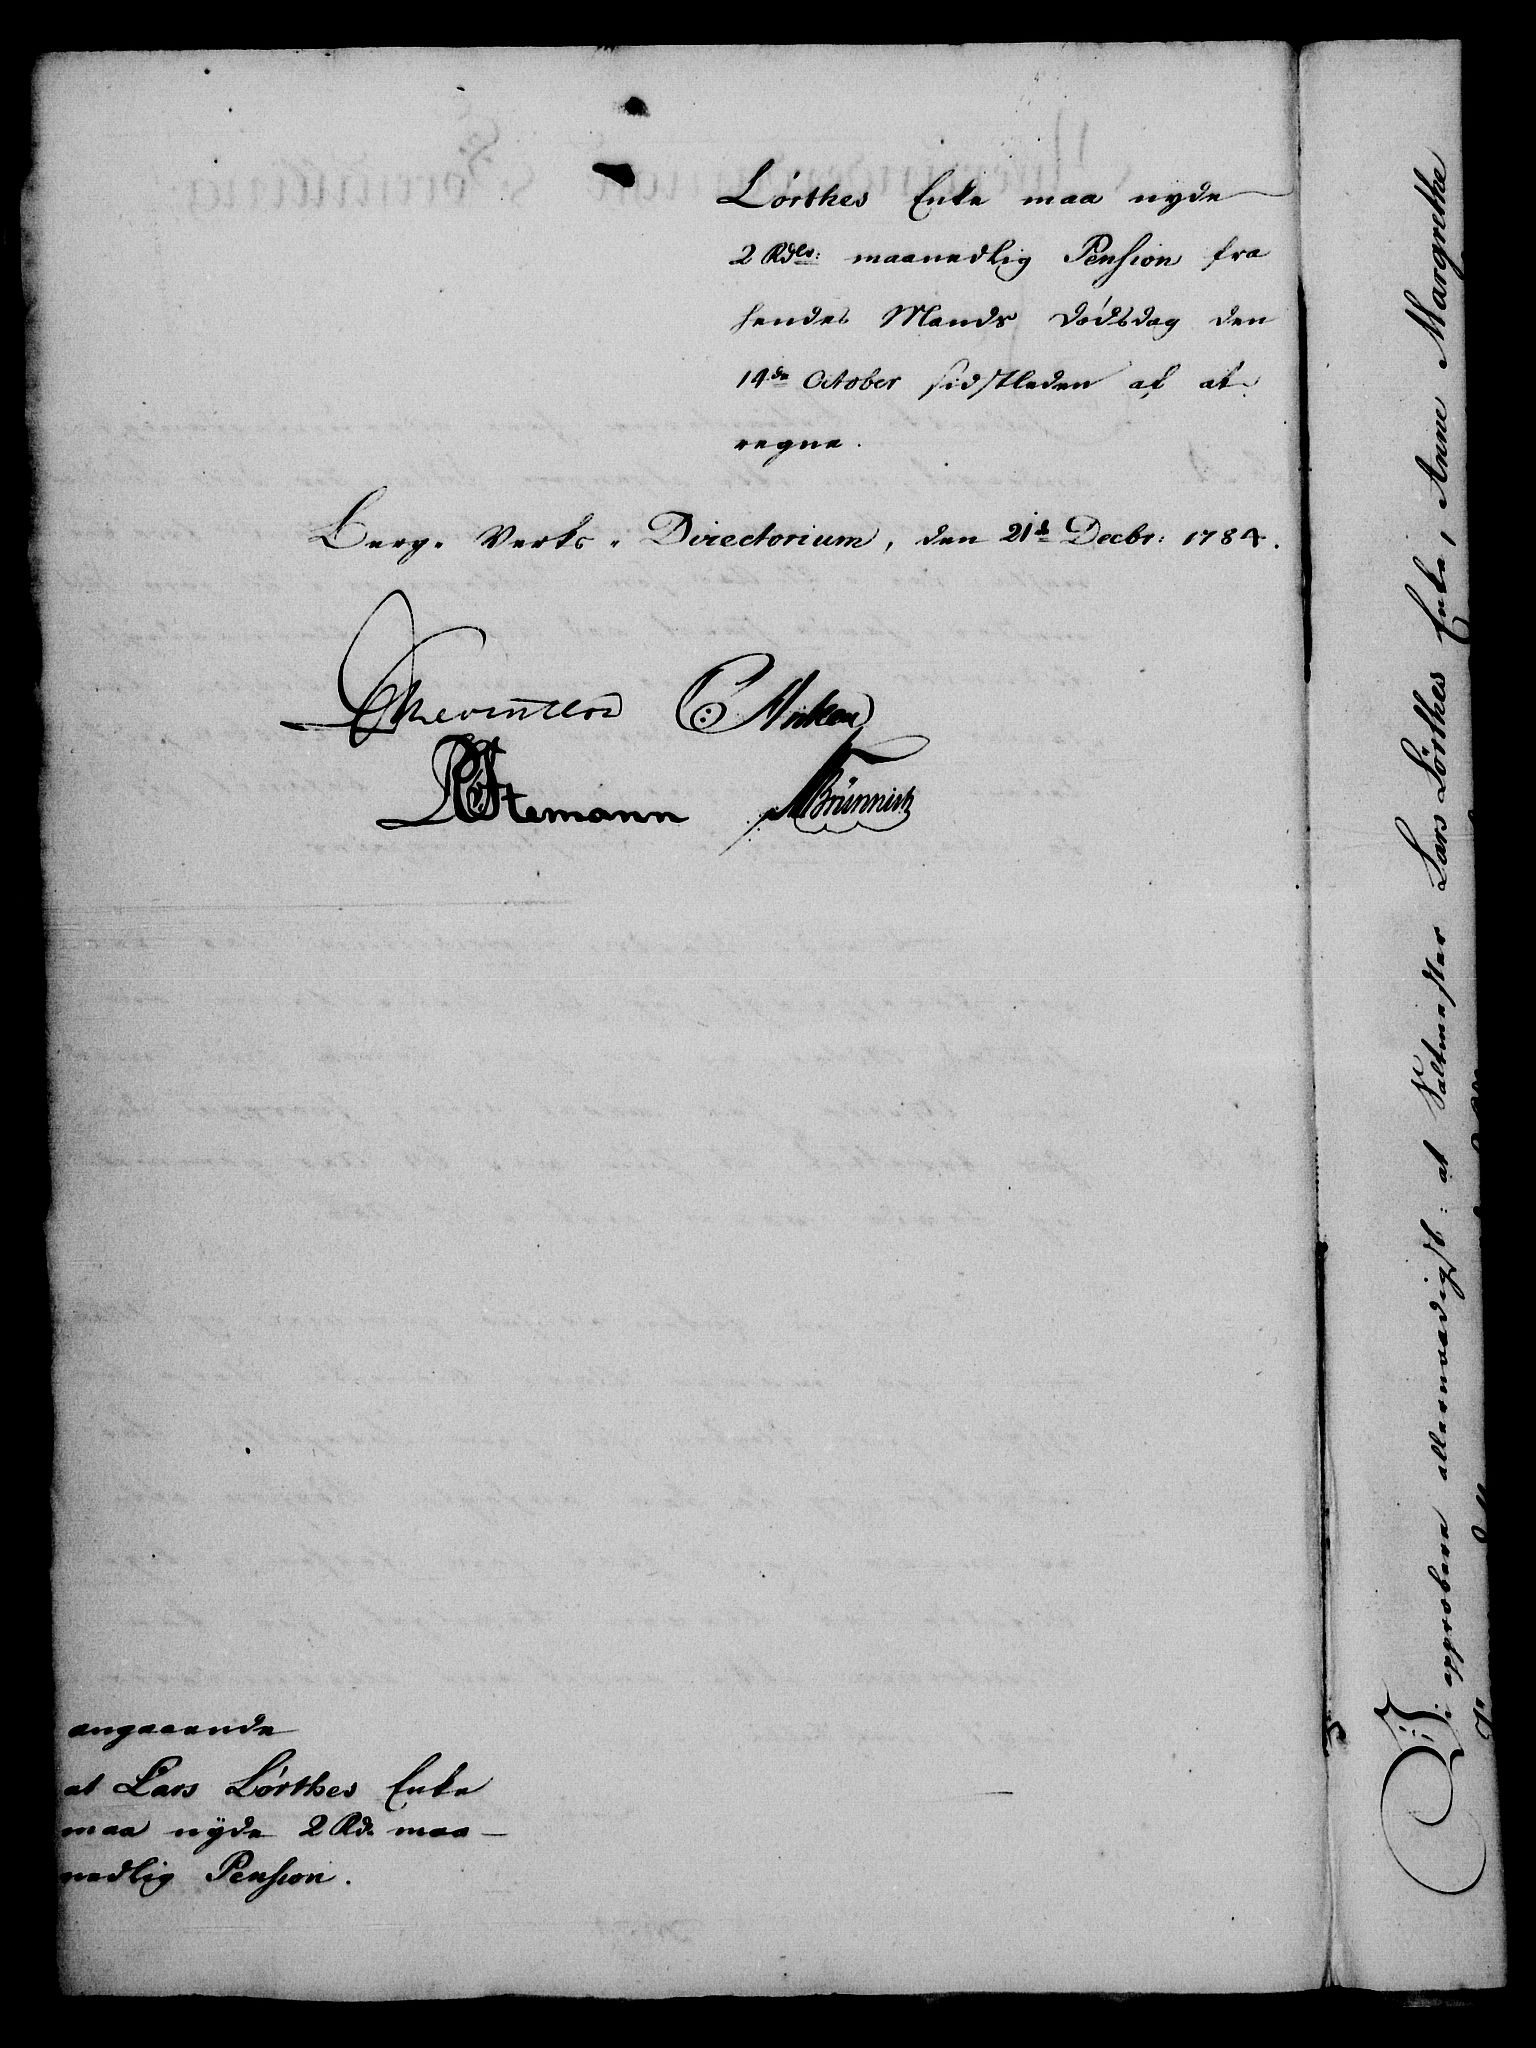 Lörthes Enke maa nyde
2 Rdlr: maanedlig Pension fra
hendes Mands Dødsdag den
14de October sidstleden af at
regne.
Berg-Verks-Directorium, den 21de Decbr: 1784.
C Anker
Stemann MBrünnich
angaaende
at Lars Lörthes Enke
maa nyde 2 Rd. maa-
nedlig Pension.
Vi approbere allernaadigst: at Saltmester Lars Lörthes Enke, Anne Margrethe